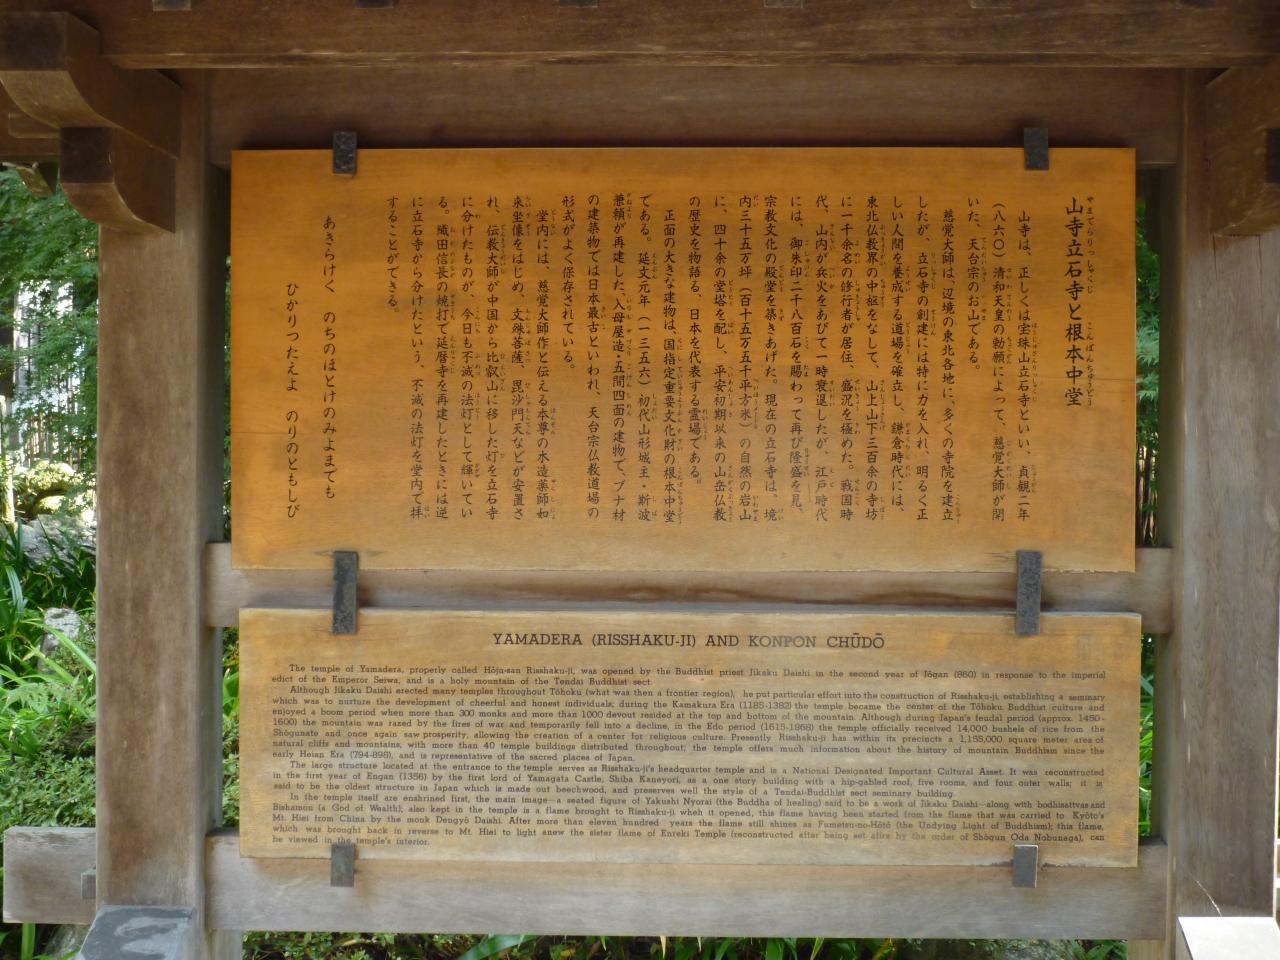 山寺立石寺と根本中堂
山寺は、正しくは宝珠山立石寺といい、貞観二年
(八六〇)清和天皇の勅願によって、慈覚大師が開
いた、天台宗のお山である。
慈覚大師は、辺境の東北各地に、多くの寺院を建立
したが、立石寺の創建には特に力を入れ、明るく正
しい人間を養成する道場を確立し、鎌倉時代には、
東北仏教界の中枢をなして、山上山下三百余の寺坊
に一千余名の修行者が居住、盛況を極めた。戦国時
代、山内が兵火をあびて一時衰退したが、江戸時代
には、御朱印二千八百石を賜わって再び隆盛を見、
宗教文化の殿堂を築きあげた。現在の立石寺は、境
内三十五万坪(百十五万五千平方米)の自然の岩山
に、四十余の堂塔を配し、平安初期以来の山岳仏教
の歴史を物語る、日本を代表する霊場である。
正面の大きな建物は、国指定重要文化財の根本中堂
である。延文元年(一三五六)初代山形城主・斯波
兼頼が再建した、入母屋造・五間四面の建物で、ブナ材
の建築物では日本最古といわれ、天台宗仏教道場の
形式がよく保存されている。
堂内には、慈覚大師作と伝える本尊の木造薬師如
来坐像をはじめ、文殊菩薩、毘沙門天などが安置さ
れ、伝教大師が中国から比叡山に移した灯を立石寺
に分けたものが、今日も不滅の法灯として輝いてい
る。織田信長の焼打で延暦寺を再建したときには逆
に立石寺から分けたという、不滅の法灯を堂内で拝
することができる。
あきらけく のちのほとけのみよまでも
ひかりつたえよ のりのともしび
YAMADERA (RISSHAKU-JI) AND KONPON CHŪDŌ
The temple of Yamadera, properly called Hōju-san Risshaku-ji, was opened by the Buddhist priest Jikaku Daishi in the second year of Jōgan (860) in response to the imperial
edict of the Emperor Seiwa, and is a holy mountain of the Tendai Buddhist sect.
Although Jikaku Daishi erected many temples throughout Tōhoku (what was then a frontier region), he put particular effort into the construction of Risshaku-ji, establishing a seminary
which was to nurture the development of cheerful and honest individuals; during the Kamakura Era (1185-1382) the temple became the center of the Tōhoku Buddhist culture and
enjoyed a boom period when more than 300 monks and more than 1000 devout resided at the top and bottom of the mountain. Although during Japan's feudal period (approx. 1450-
1600) the mountain was razed by the fires of war and temporarily fell into a decline, in the Edo period (1615-1868) the temple officially received 14,000 bushels of rice from the
Shōgunate and once again saw prosperity, allowing the creation of a center for religious culture. Presently Risshaku-ji has within its precincts a 1,155,000 square meter area of
natural cliffs and mountains, with more than 40 temple buildings distributed throughout; the temple offers much information about the history of mountain Buddhism since the
early Heian Era (794-898), and is representative of the sacred places of Japan.
The large structure located at the entrance to the temple serves as Risshaku-ji's headquarter temple and is a National Designated Important Cultural Asset. It was reconstructed
in the first year of Engan (1356) by the first lord of Yamagata Castle, Shiba Kaneyori, as a one story building with a hip-gabled roof, five rooms, and four outer walls; it is
said to be the oldest structure in Japan which is made out beechwood, and preserves well the style of a Tendai-Buddhist sect seminary building.
In the temple itself are enshrined first, the main image—a seated figure of Yakushi Nyorai (the Buddha of healing) said to be a work of Jikaku Daishi—along with bodhisattvas and
Bishamon (a God of Wealth); also kept in the temple is a flame brought to Risshaku-ji when it opened, this flame having been started from the flame that was carried to Kyōto's
Mt. Hiei from China by the monk Dengyō Daishi. After more than eleven hundred years the flame still shines as Fumetsu-no-Hōtō (the Undying Light of Buddhism); this flame,
which was brought back in reverse to Mt. Hiei to light anew the sister flame of Enreki Temple (reconstructed after being set afire by the order of Shōgun Oda Nobunaga), can
be viewed in the temple's interior.